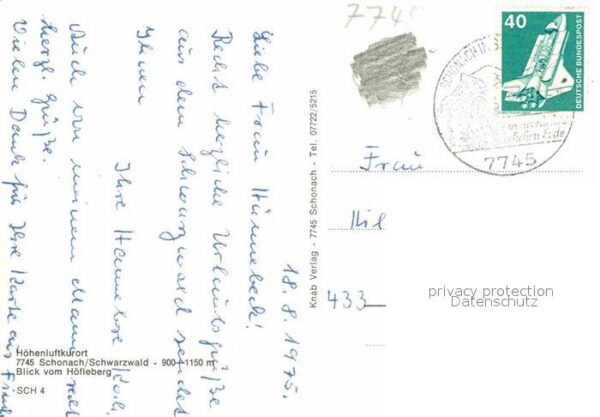 7745
40
DEUTSCHE BUNDESPOST
7745
18.8.1975.
Liebe Frau Hünnebeck!
Recht herzliche Urlaubsgrüße
aus dem Schwarzwald sendet
Ihnen
Ihre Hannelore
Auch von meinem Mann
herzl. Grüße.
Vielen Dank für Ihre Karte aus
Frau
433
Knab Verlag - 7745 Schonach - Tel. 07722/5215
privacy protection
Datenschutz
Höhenluftkurort
7745 Schonach/Schwarzwald - 900-1150 m
Blick vom Höfleberg
SCH 4